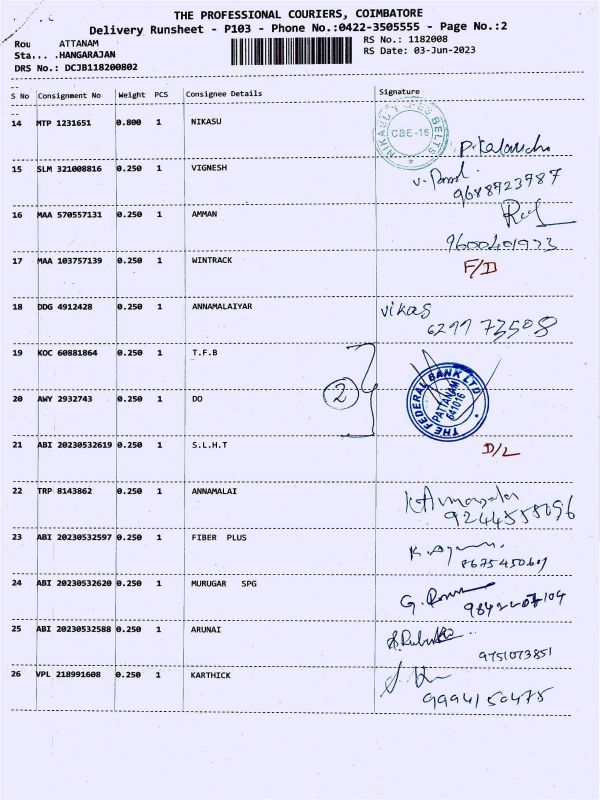 THE PROFESSIONAL COURIERS, COIMBATORE
Delivery Runsheet - P103 - Phone No.:0422-3505555 - Page No.:2
Rou ATTANAM RS No.: 1182008
Sta... .HANGARAJAN RS Date: 03-Jun-2023
DRS No.: DCJB118200802
S No Consignment No Weight PCS Consignee Details Signature
14 MTP 1231651 0.800 1 NIKASU
CBE-16 BELTS
15 SLM 321008816 0.250 1 VIGNESH
9688723787
16 MAA 570557131 0.250 1 AMMAN
17 MAA 103757139 0.250 1 WINTRACK F/D
18 DDG 4912428 0.250 1 ANNAMALAIYAR vikas
62977 73508
19 KOC 60881864 0.250 1 T.F.B
20 AWY 2932743 0.250 1 DO 2
THE FEDERAL BANK LTD
PATTANAM
641016
21 ABI 20230532619 0.250 1 S.L.H.T D/L
22 TRP 8143862 0.250 1 ANNAMALAI
23 ABI 20230532597 0.250 1 FIBER PLUS
24 ABI 20230532620 0.250 1 MURUGAR SPG
25 ABI 20230532588 0.250 1 ARUNAI
9751073851
26 VPL 218991608 0.250 1 KARTHICK
9994150475